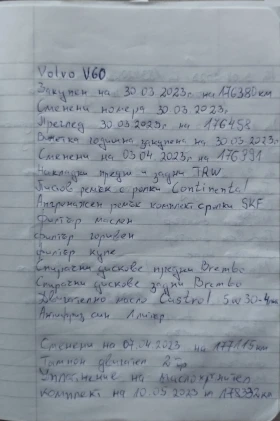 Volvo V60
Закупен на 30.03.2023г на 176380км
Сменени номера 30.03.2023г
Преглед 30.03.2023г на 176458
Винетка годишна закупена на 30.03.2023г
Сменени на 03.04.2023г на 176991
Накладки предни и задни TRW
Пистов ремък с ролки Continental
Ангренажен ремък комплект с ролки SKF
Филтър маслен
филтър горивен
филтър купе
Спирачни дискове предни Brembo
Спирачни дискове задни Brembo
Двигателно масло Castrol 5w30-4
Антифриз син 1 литър
Сменени на 07.04.2023 на 177115км
Тампон двигател 2
Уплътнение на маслоохладител
комплект на 10.05.2023 на